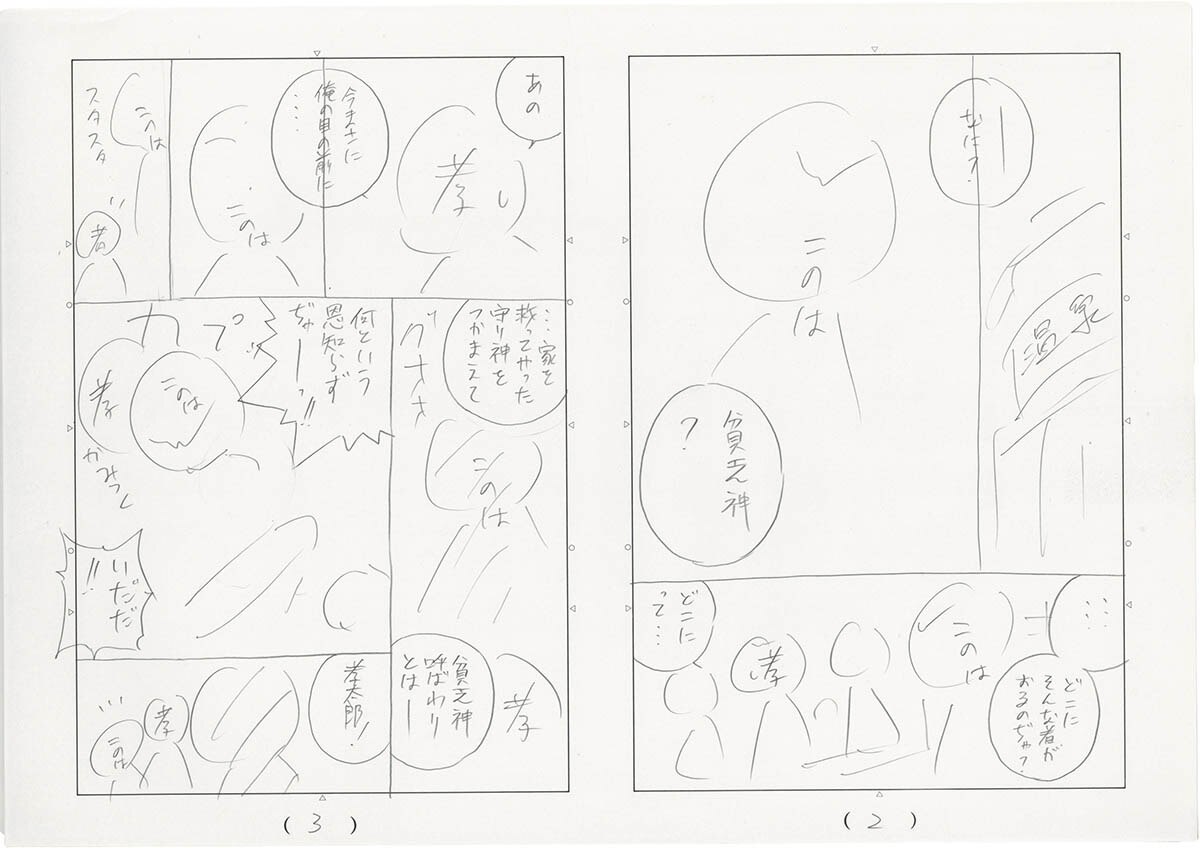 なに?
温泉
このは
貧乏神
?
……
どこに
そんな者が
おるのぢゃ?
このは
孝
どこに
って…
(2)
あの
孝
今まさに
俺の目の前に
……
このは
このは
スタスタ
者
…家を
救ってやった
守り神を
つかまえて
グサッ
このは
何という
恩知らず
ぢゃーっ!!
カプッ
このは
孝
かみつく
いだだ
!!
貧乏神
呼ばわり
とはー
孝
孝太郎!
孝
このは
(3)